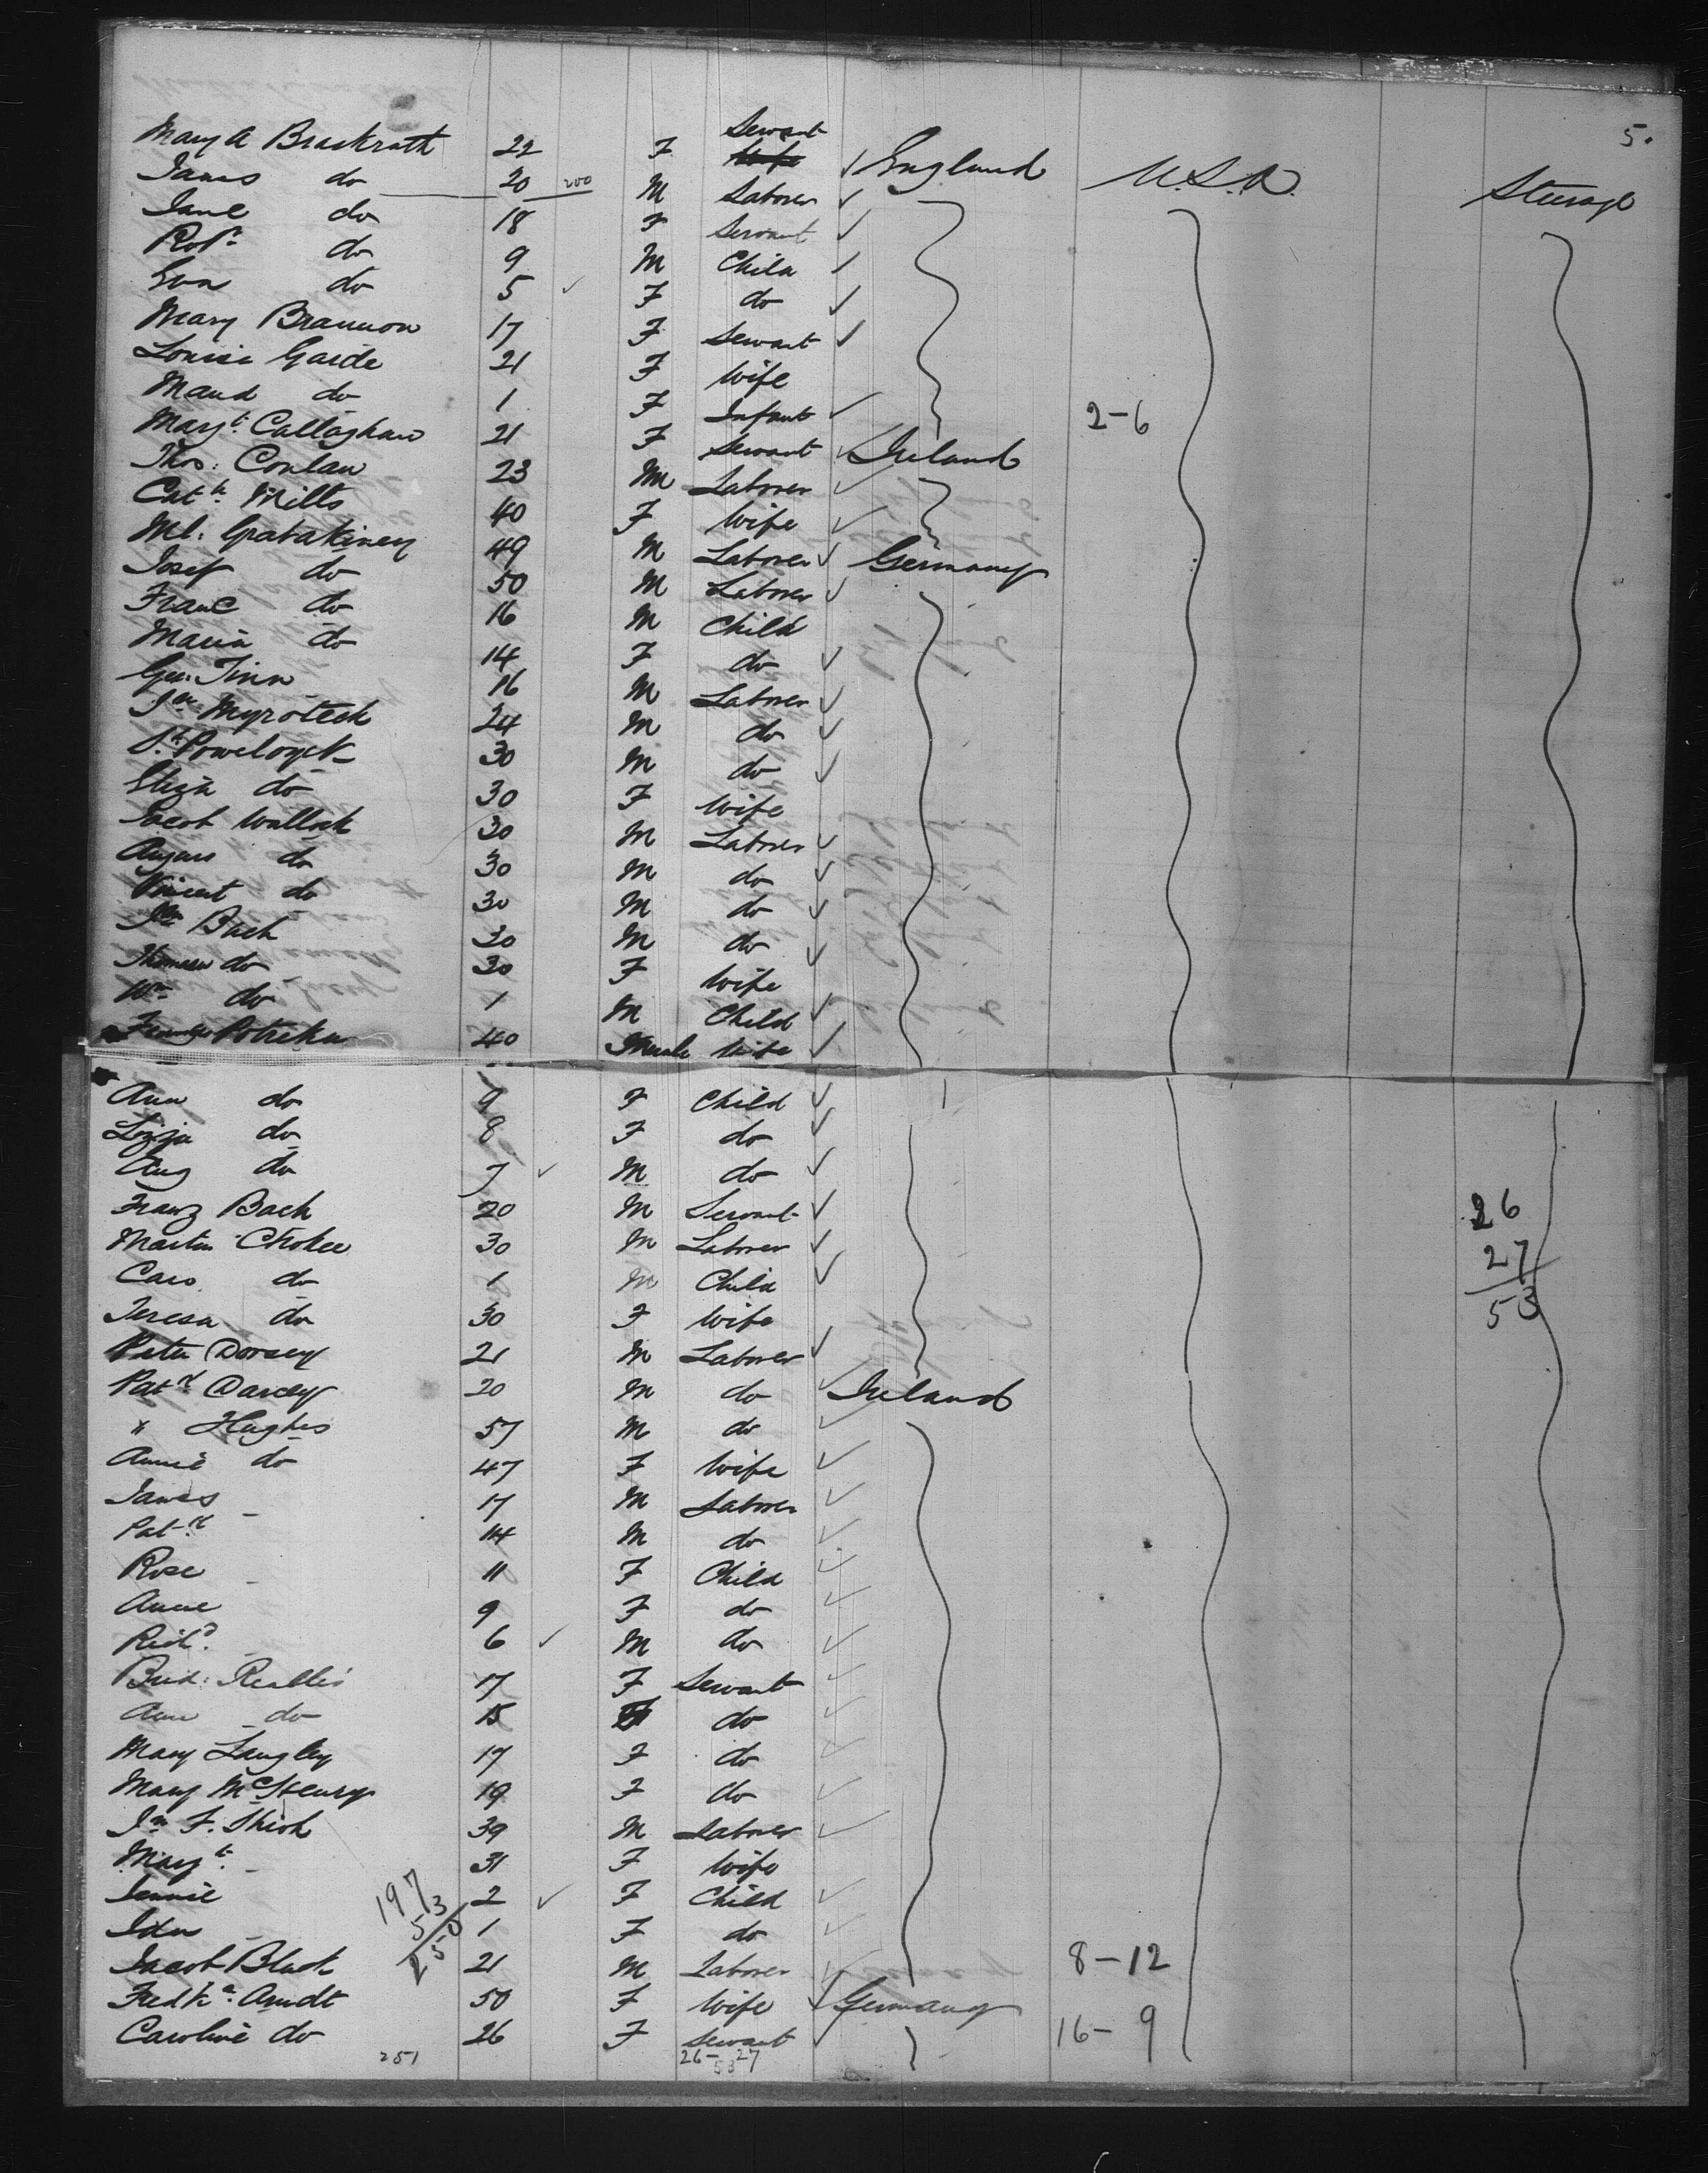 5.
Mary A Brackrath 22 F Servant Wife ✓ England U.S.A. Steerage
James do 20 200 M Laborer ✓
Jane do 18 F Servant ✓
Robt do 9 M Child ✓
Eva do 5 ✓ F do ✓
Mary Brannon 17 F Servant ✓
Louisa Garde 21 F Wife
Maud do 1 F Infant ✓ 2-6
Margt. Callaghan 21 F Servant ✓ Ireland
Thos: Conlan 23 M Laborer ✓
Cath: Mills 40 F Wife ✓
Ml: Grabakiney 49 M Laborer ✓ Germany
Josef do 50 M Laborer ✓
Franc do 16 M Child
Maria do 14 F do ✓
Geo: Finn 16 M Laborer ✓
Jn Myroteck 24 M do ✓
Powelogek 30 M do ✓
Eliza do 30 F Wife
Jacob Wallock 30 M Laborer ✓
do 30 M do ✓
Vincent do 30 M do ✓
Jn Bach 30 M do ✓
do 30 F Wife
Wm do 1 M Child ✓
Potreka 40 Wife ✓
Ann do 9 F Child ✓
do 8 F do ✓
Aug do 7 ✓ M do ✓
Franz Bach 20 M Servant ✓ 26
Martin Chokee 30 M Laborer ✓ 27
do 1 M Child ✓ 53
Teresa do 30 F Wife
Peter Dorsey 21 M Laborer ✓
Patk Darcey 20 M do ✓ Ireland
" Hughes 57 M do ✓
Annie do 47 F Wife ✓
James - 17 M Laborer ✓
Patk 14 M do ✓
Rose - 11 F Child ✓
Anne 9 F do ✓
Richd. 6 ✓ M do ✓
Brid: 17 F Servant ✓
Ann do 15 F do ✓
Mary Langley 17 F do ✓
Mary McHenry 19 F do ✓
Jn F. 39 M Laborer ✓
Margt. 31 F Wife
Jennie 197 2 ✓ F Child ✓
Ida 53 1 F do ✓
Jacob Black 250 21 M Laborer ✓ 8-12
Fredka. Arndt 50 F Wife ✓ Germany
Caroline do 26 F Servant ✓ 16-9
251 26-27
53